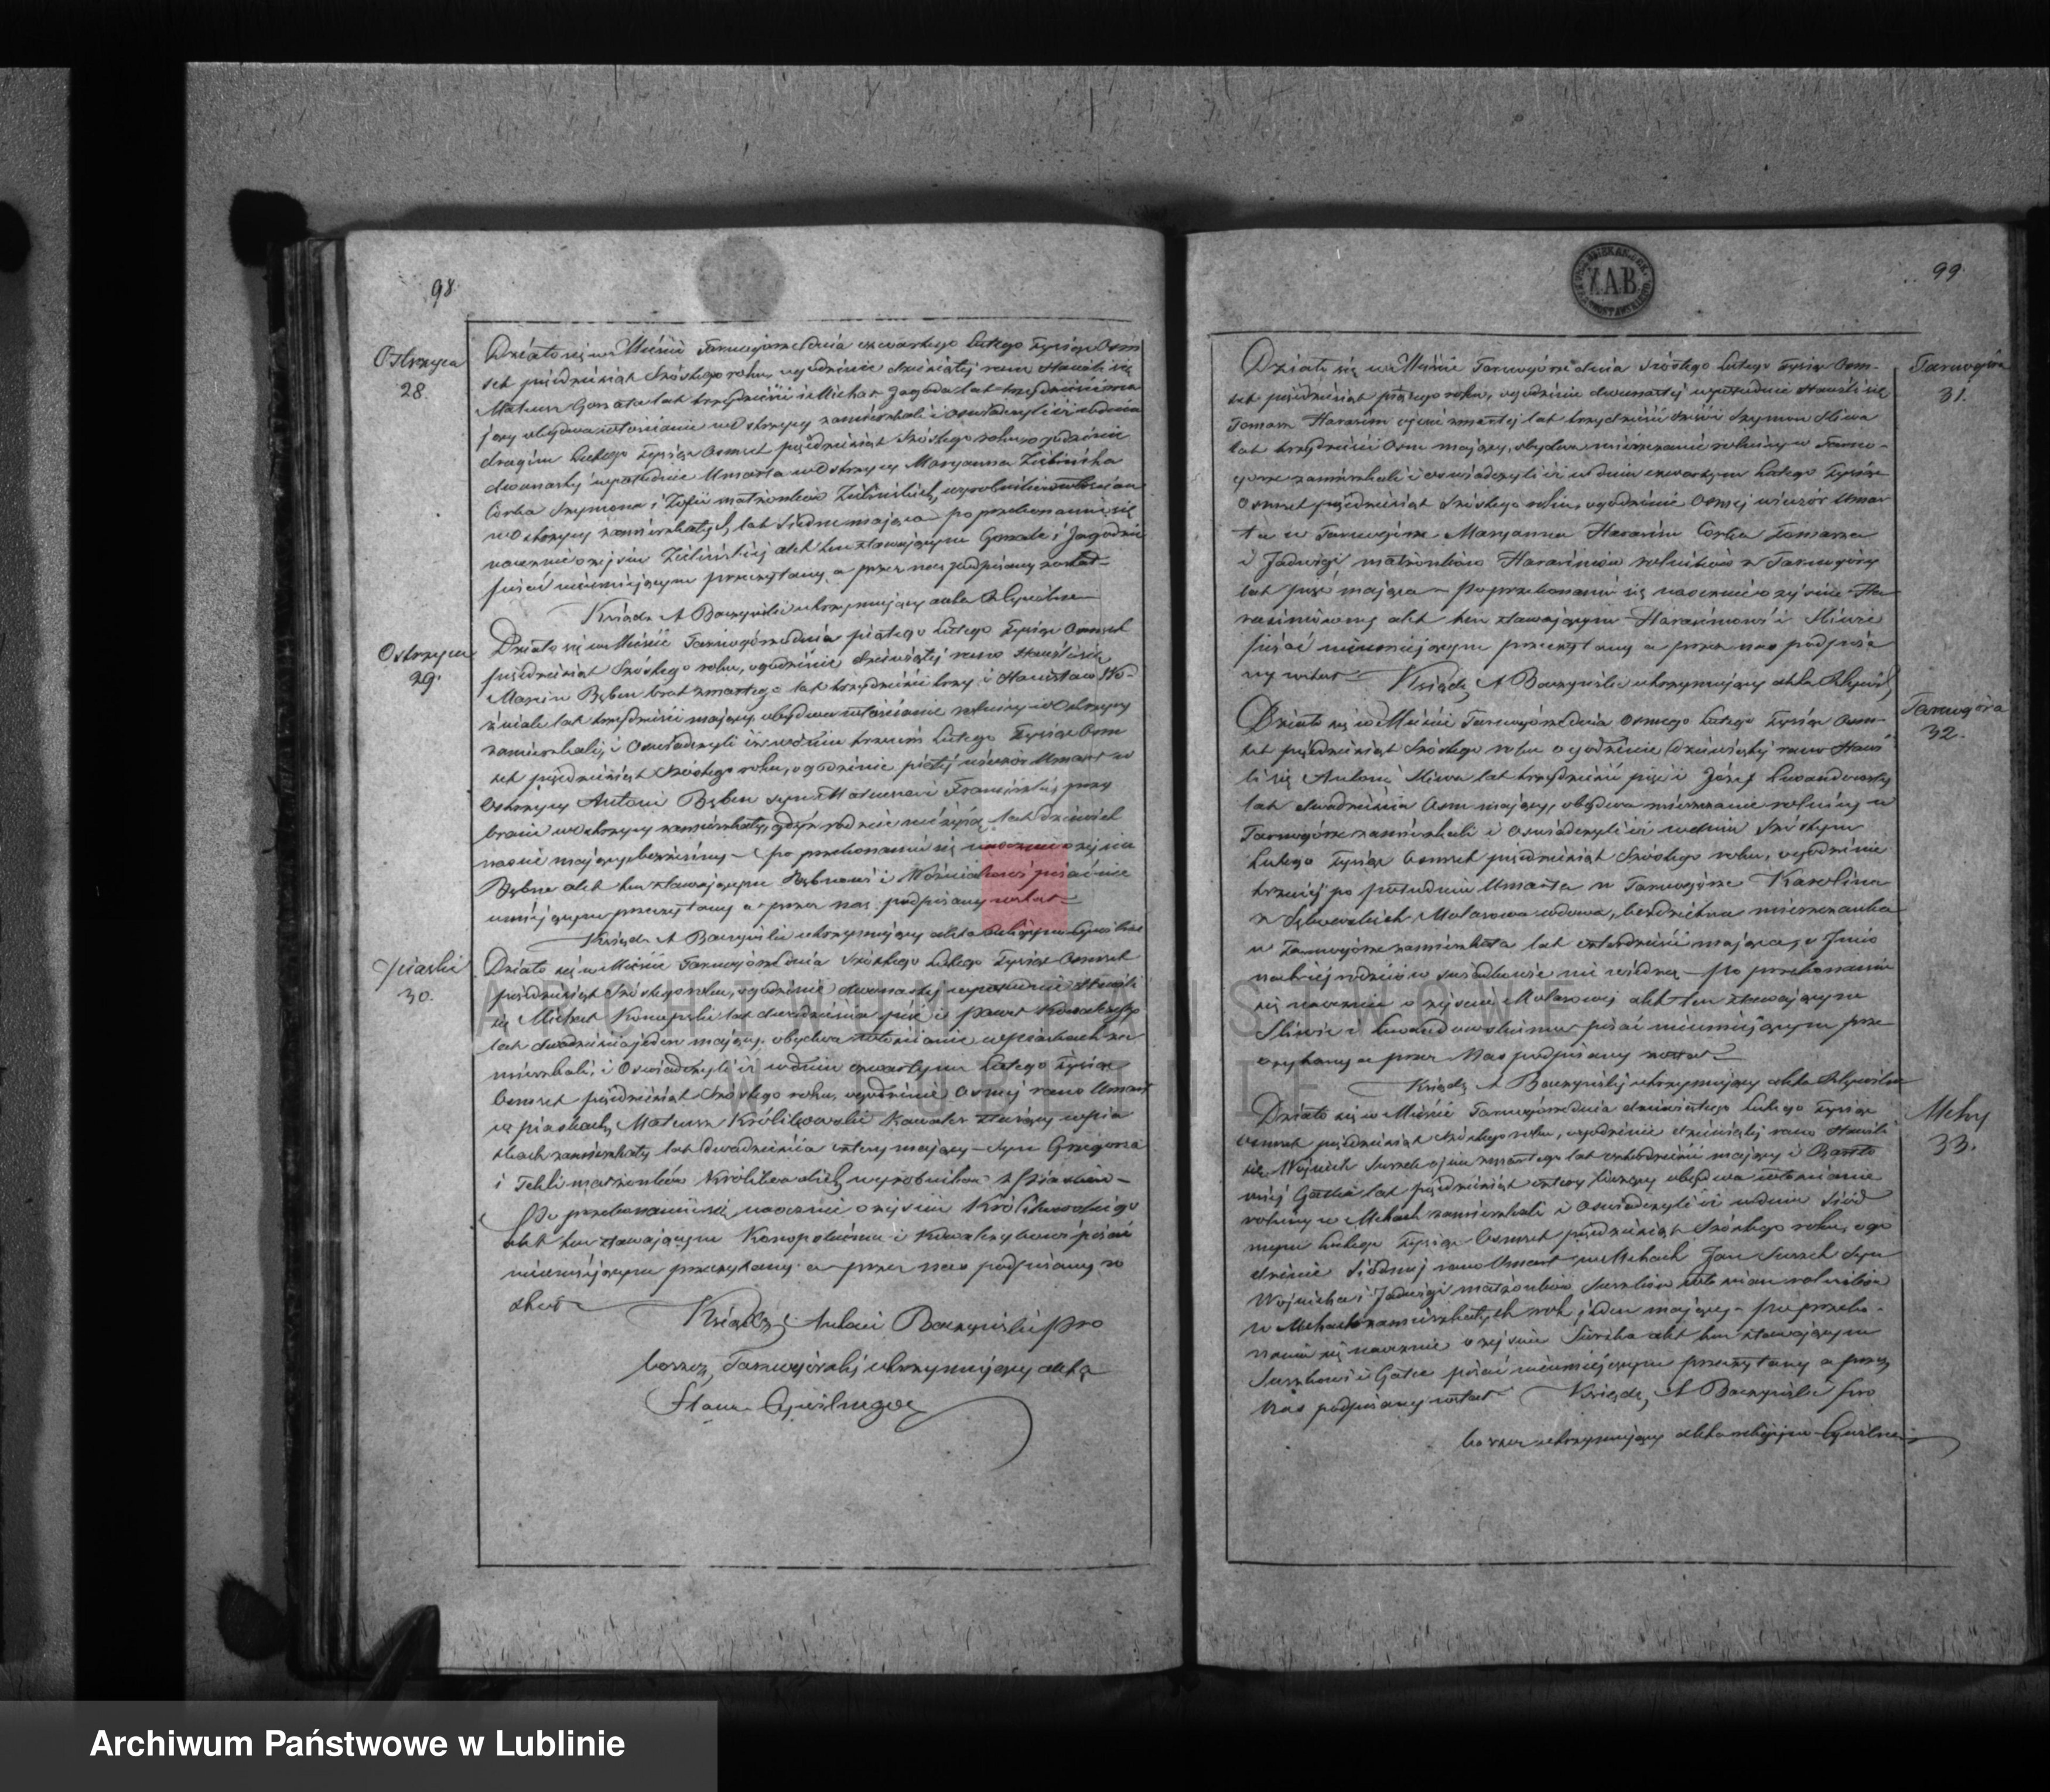 98.
Ostrzyca
28.
Działo się w Mieście Tarnogórze dnia czwartego Lutego Tysiąc Osm-
set pięćdziesiąt Szóstego roku, o godzinie dziewiątej rano Stawili się
Mateusz Gonzała lat trzydzieści i Michał Jagoda lat trzydzieści
jący obydwa włościanie w Ostrzycy zamieszkali i oświadczyli iż w dniu
drugim Lutego Tysiąc Osmset pięćdziesiąt Szóstego roku o godzinie
dwunastej w południe Umarła w Ostrzycy Maryanna Zielińska
Córka Szymona i Zofii małżonków Zielińskich, wyrobników
w Ostrzycy zamieszkałych, lat Siedm mająca po przekonaniu się
naocznie o zejściu Zielińskiej akt ten stawającym Gonzale i Jagodzie
pisać nieumiejącym przeczytany, a przez nas podpisany został
Ksiądz A Baczyński utrzymujący akta Cywilne
Ostrzyca
29.
Działo się w Mieście Tarnogórze dnia piątego Lutego Tysiąc Osmset
pięćdziesiąt Szóstego roku, o godzinie dziewiątej rano Stawili się
Marcin Bęben brat zmarłego lat trzydzieści trzy i Stanisław Wo-
źniak lat trzydzieści mający, obydwa włościanie rolnicy w Ostrzycy
zamieszkali, i Oświadczyli iż w dniu trzecim Lutego Tysiąc Osm
set pięćdziesiąt Szóstego roku, o godzinie piątej wieczór Umarł w
Ostrzycy Antoni Bęben syn Mateusza i Franciszki, przy
bracie w Ostrzycy zamieszkały, gdyż rodzice nie żyją, lat
naście mający bezżenny – Po przekonaniu się naocznie o zejściu
Bębna akt ten stawającym Bębnowi i Woźniakowi pisać nie
umiejącym przeczytany a przez nas podpisany został
Ksiądz A Baczyński utrzymujący akta Cywilne
Piaski
30.
Działo się w Mieście Tarnogórze dnia Szóstego Lutego Tysiąc Osmset
pięćdziesiąt Szóstego roku, o godzinie dwunastej w południe Stawili
się Michał Konopski lat dwadzieścia pięć i Paweł Kowalczyk
lat dwadzieścia jeden mający, obydwa włościanie w Piaskach za
mieszkali, i Oświadczyli iż w dniu czwartym Lutego Tysiąc
Osmset pięćdziesiąt Szóstego roku, o godzinie Osmej rano Umarł
w piaskach, Mateusz Królikowski Kawaler służący w Pia
skach zamieszkały lat dwadzieścia cztery mający – Syn Grzegorza
i Tekli małżonków Królikowskich wyrobników z
Po przekonaniu się naocznie o zejściu Królikowskiego
akt ten stawającym Konopskiemu i Kowalczykowi pisać
nieumiejącym przeczytany a przez nas podpisany zo
stał
Ksiądz Antoni Baczyński Pro
boszcz Tarnogórski utrzymujący akta
Stanu Cywilnego
99
Tarnogóra
31.
Działo się w Mieście Tarnogórze dnia Szóstego Lutego Tysiąc Osm-
set pięćdziesiąt roku, o godzinie dwunastej w południe Stawili się
Tomasz Harasim ojciec zmarłej lat trzydzieści sześć i Szymon Sliwa
lat trzydzieści Osm mający, obydwa mieszczanie rolnicy w Tarno-
górze zamieszkali i oświadczyli iż w dniu czwartym Lutego Tysiąc
Osmset pięćdziesiąt Szóstego roku, o godzinie Osmej wieczór Umar
ła w Tarnogórze Maryanna Harasim Córka Tomasza
i Jadwigi małżonków Harasimów rolników z Tarnogóry
lat pięć mająca – Po przekonaniu się naocznie o zejściu Ha
rasimówny akt ten stawającym Harasimowi i Sliwie
pisać nieumiejącym przeczytany a przez nas podpisa
ny został Ksiądz A Baczyński utrzymujący akta Cywil
Tarnogóra
32.
Działo się w Mieście Tarnogórze dnia Osmego Lutego Tysiąc Osm-
set pięćdziesiąt Szóstego roku o godzinie dziewiątej rano Stawi
li się Antoni Sliwa lat trzydzieści pięć i Józef Lewandowski
lat dwadzieścia Osm mający, obydwa mieszczanie rolnicy w
Tarnogórze zamieszkali i Oświadczyli iż w dniu Szóstym
Lutego Tysiąc Osmset pięćdziesiąt Szóstego roku, o godzinie
trzeciej po południu Umarła w Tarnogórze Karolina
z Malasowa wdowa, bezdzietna mieszczanka
w Tarnogórze zamieszkała lat czterdzieści mająca, Imio
na jej rodziców świadkowie nie wiedzą – Po przekonaniu
się naocznie o zejściu Malasowej akt ten stawającym
Sliwie i Lewandowskiemu pisać nieumiejącym prze
czytany a przez Nas podpisany został
Ksiądz A Baczyński utrzymujący akta Cywilne
Mchy
33.
Działo się w Mieście Tarnogórze dnia dziewiątego Lutego Tysiąc
Osmset pięćdziesiąt Szóstego roku, o godzinie dziewiątej rano Stawili
się Wojciech Suszek ojciec zmarłego lat czterdzieści mający i Bartło
miej Gałka lat pięćdziesiąt cztery liczący obydwa włościanie
rolnicy w Mchach zamieszkali i Oświadczyli iż w dniu Siód
mym Lutego Tysiąc Osmset pięćdziesiąt Szóstego roku, o go
dzinie Siódmej rano Umarł w Mchach Jan Suszek Syn
Wojciecha i Jadwigi małżonków Suszków włościan rolników
w Mchach zamieszkałych rok jeden mający – Po przeko-
naniu się naocznie o zejściu Suszka akt ten stawającym
Suszkowi i Gałce pisać nieumiejącym przeczytany a przez
Nas podpisany został Ksiądz A Baczyński Pro
boszcz utrzymujący akta Cywilne
Z.A.B.
ARCHIWUM PAŃSTWOWE
W LUBLINIE
Archiwum Państwowe w Lublinie